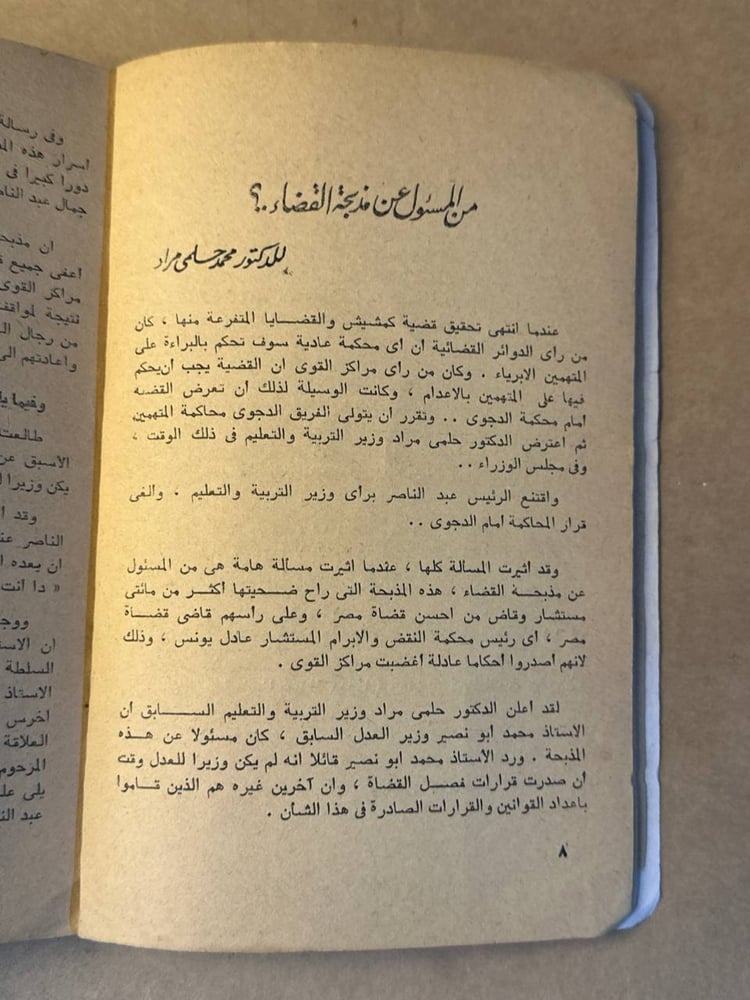 من المسئول عن مذبحة القضاء ..؟
للدكتور محمد حلمى مراد
عندما انتهى تحقيق قضية كمشيش والقضايا المتفرعة منها ، كان
من رأى الدوائر القضائية ان اى محكمة عادية سوف تحكم بالبراءة على
المتهمين الابرياء . وكان من راى مراكز القوى ان القضية يجب ان يحكم
فيها على المتهمين بالاعدام ، وكانت الوسيلة لذلك ان تعرض القضيه
امام محكمة الدجوى .. وتقرر ان يتولى الفريق الدجوى محاكمة المتهمين
ثم اعترض الدكتور حلمى مراد وزير التربية والتعليم فى ذلك الوقت ،
وفى مجلس الوزراء ..
واقتنع الرئيس عبد الناصر برأى وزير التربية والتعليم . والغى
قرار المحاكمة امام الدجوى ..
وقد اثيرت المسالة كلها ، عندما اثيرت مسالة هامة هى من المسئول
عن مذبحة القضاء ، هذه المذبحة التى راح ضحيتها اكثر من مائتى
مستشار وقاض من احسن قضاة مصر ، وعلى راسهم قاضى قضاة
مصر ، اى رئيس محكمة النقض والابرام المستشار عادل يونس ، وذلك
لانهم اصدروا أحكاما عادلة اغضبت مراكز القوى .
لقد اعلن الدكتور حلمى مراد وزير التربية والتعليم السابق ان
الاستاذ محمد ابو نصير وزير العدل السابق ، كان مسئولا عن هذه
المذبحة . ورد الاستاذ محمد ابو نصير قائلا انه لم يكن وزيرا للعدل وقت
ان صدرت قرارات فصل القضاة ، وان آخرين غيره هم الذين قاموا
باعداد القوانين والقرارات الصادرة فى هذا الشأن .
٨
وفى رسالة
اسرار هذه
دورا كبيرا فى
جمال عبد
ان
اعفى جميع
مراكز القوى
نتيجة
من رجال
واعادتهم
وفيما
طالعت
الاسبق عن
يكن وزيرا
وقد
الناصر
ان يعده
« دا انت
ان
السلطة
الاستاذ
اخرس
العلاقة
المرحوم
يلى
عبد